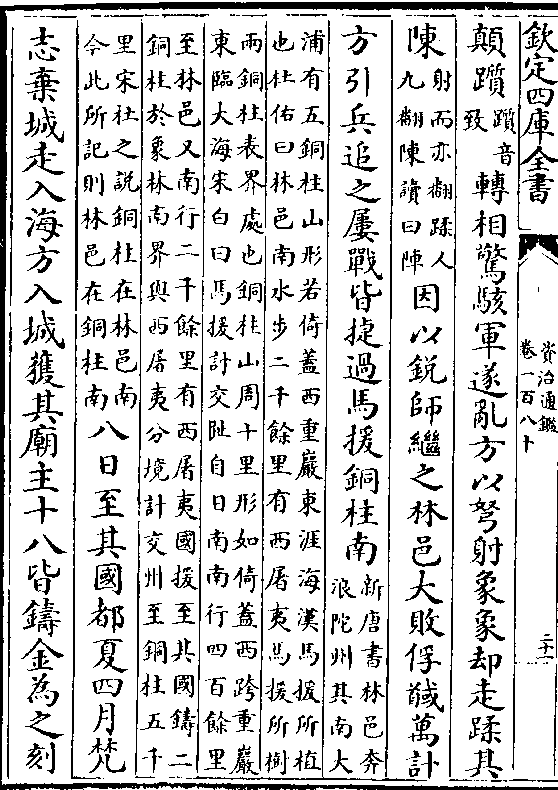 欽定四庫全書
資治通鑑
卷一百八十
二十一
顛躓
躓音
致
轉相驚駭軍遂亂方以弩射象象却走蹂其
陳
射而亦翻蹂人
九翻陳讀曰陣
因以鋭師繼之林邑大敗俘馘萬計
方引兵追之屢戰皆捷過馬援銅柱南
新唐書林邑奔
浪陀州其南大
浦有五銅柱山形若倚蓋西重巖東涯海漢馬援所植
也杜佑曰林邑南水步二千餘里有西屠夷馬援所樹
兩銅柱表界處也銅柱山周十里形如倚蓋西跨重巖
東臨大海宋白曰馬援討交阯自日南南行四百餘里
至林邑又南行二千餘里有西屠夷國援至其國鑄二
銅柱於象林南界與西屠夷分境計交州至銅柱五千
里宋杜之説銅柱在林邑南
今此所記則林邑在銅柱南
八日至其國都夏四月梵
志棄城走入海方入城獲其廟主十八皆鑄金為之刻